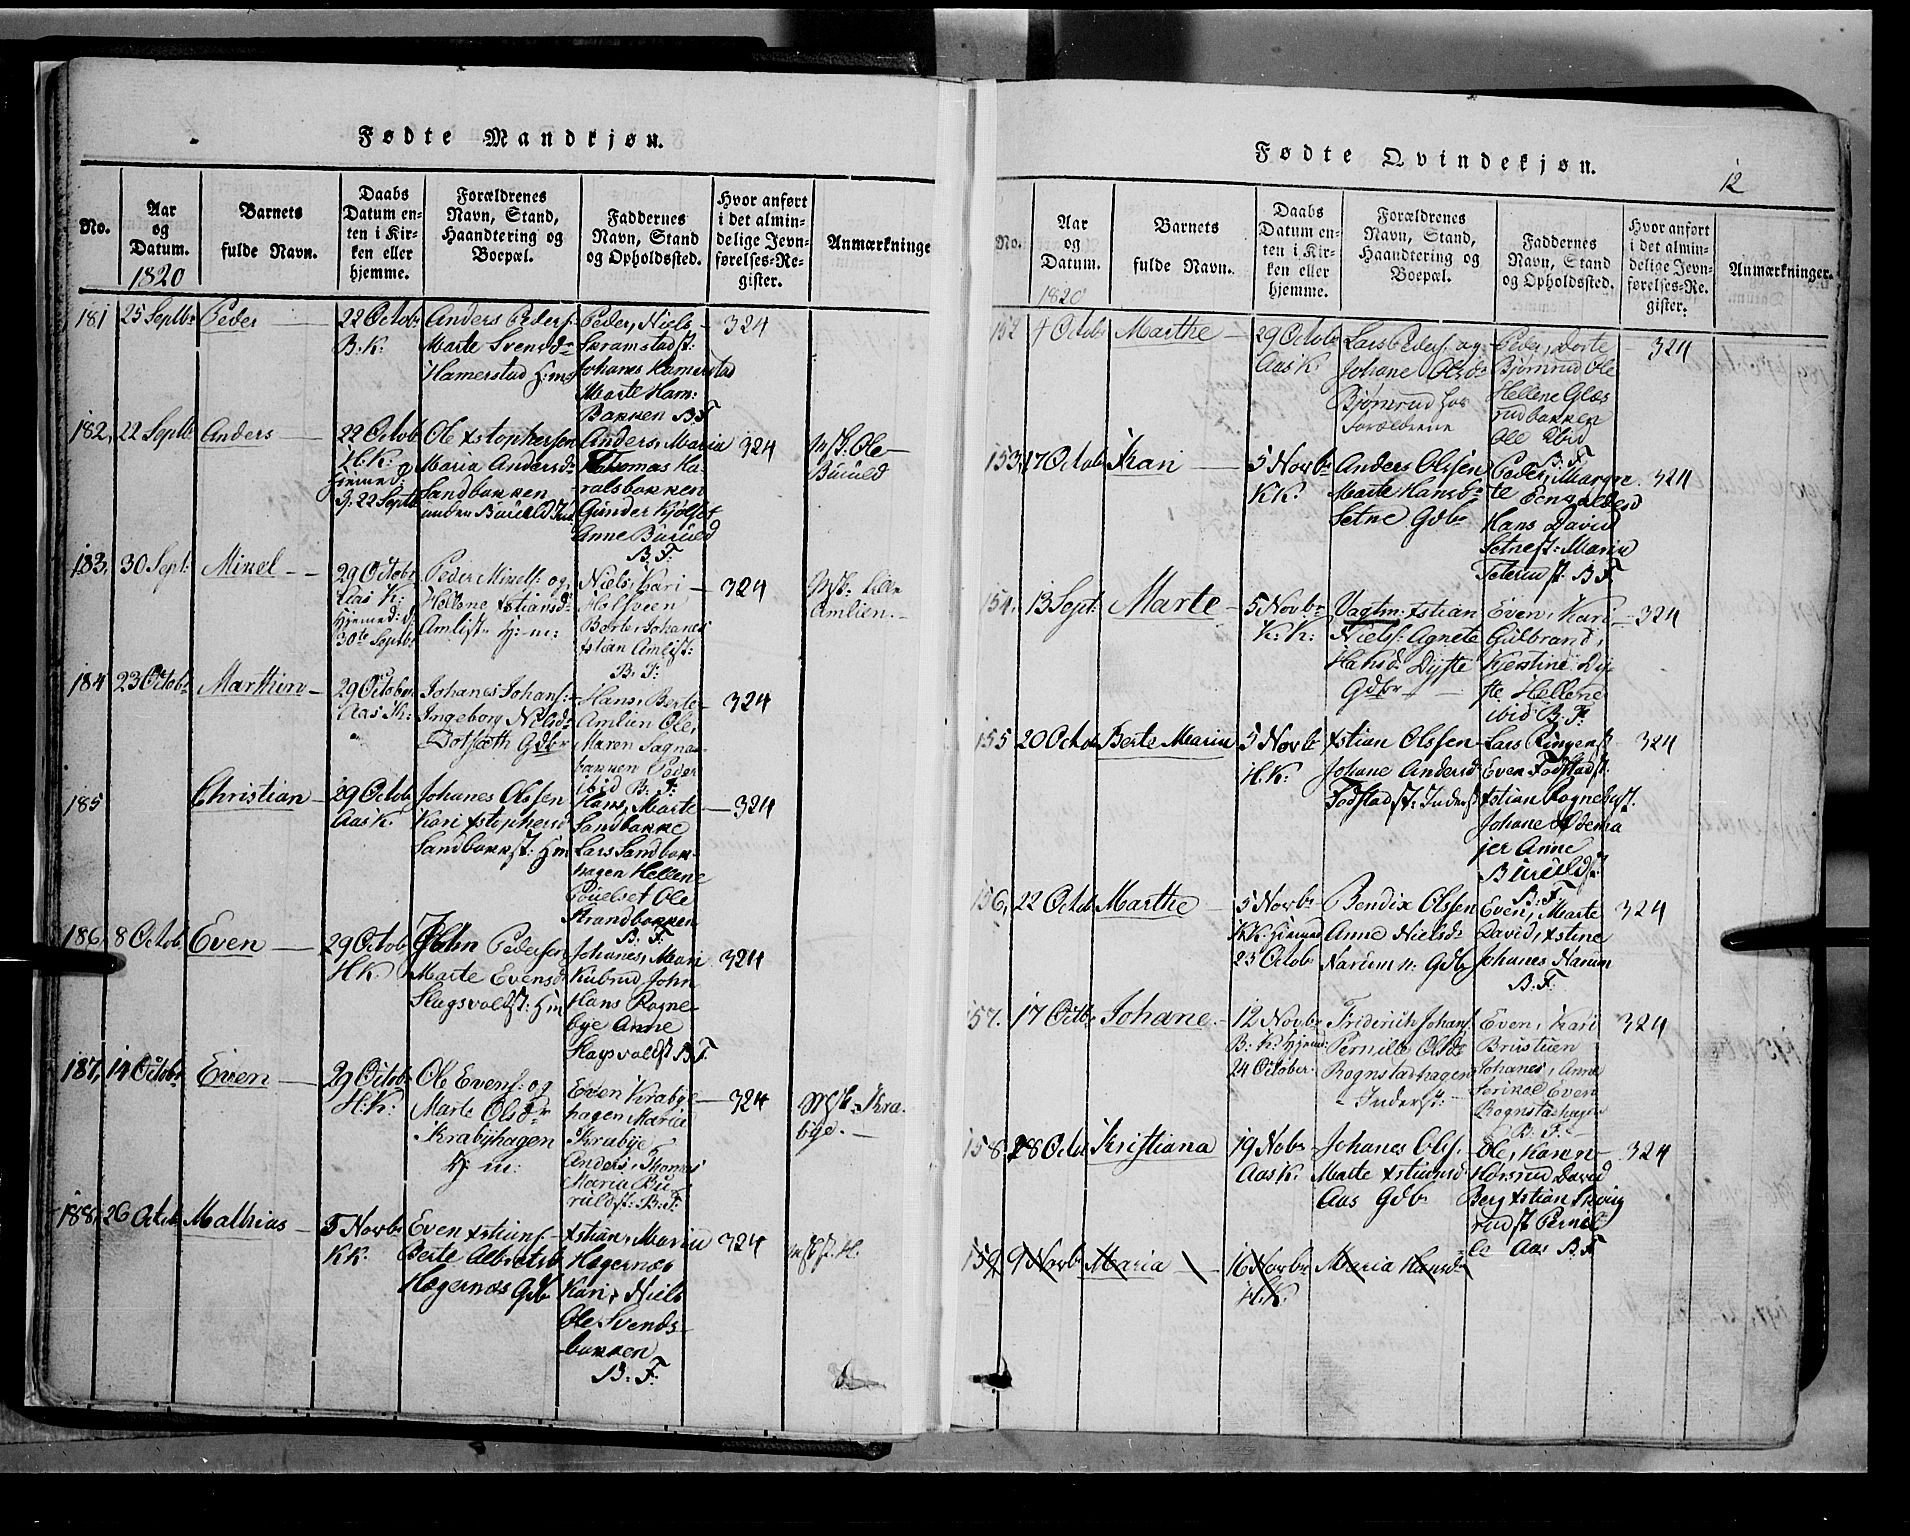 Fødte Mandkjøn.
No.
Aar
og
Datum.
1820
Barnets
fulde Navn.
Daabs
Datum en-
ten i Kir-
ken eller
hjemme.
Forældrenes
Navn, Stand,
Haandtering og
Boepæl.
Faddernes
Navn, Stand
og Opholdssted.
Hvor anført
i det almin-
delige Jevn-
førelses-Re-
gister.
Anmærkninge
181
25 Septbr
Peder
22 Octobr
B. K:
Anders Peders:
Marte Svensdr
Hamerstad H:m
Peder, Niels
Faramstadst:
Johanes Hamerstad
Marte Ham:
Bakken B F
324
182,
22 Septb
Anders
22 Octob
H. K:
Hjemed:
d: 22 Septb
Ole xstophersen
Maria Andersdr
Sandbakken
under Buruld
Anders, Maria
Thomas Ha-
ralsbakken
Gunder Kjølset
Anne Buruld
B. F:
324
Ole
Buruld
183,
30 Sept:
Mikel
29 Octobr
Aas K:
Hjemed: d:
30te Septbr
Peder Mikels: og
Hellene xstiansdr
Amlist: H: m:
Niels, Kari
Holsveen
Borte Johanes
xstian Amlist:
B. F:
324
Lille
Amlien.
184
23 Octobr
Marthin
29 Octobr
Aas K:
Johanes Johans:
Ingeborg Nilsdr
Dotsæth Gdbr
Hans, Berte
Amlien Ole,
Maren Sagna
bakken Peder
ibid B: F:
324
185
Christian
29 Octob
Aas K:
Johanes Olssen
Kari xstophersd
Sandbakkst: Hm
Hans, Marte
Sandbakke
Lars Sandbak-
hagen Hellene
Pouelset Ole
Strandbakken
B: F:
324
186,
8 Octob
Even
29 Octob
H K:
John Pedersen
Marte Evensd
Slagsvoldst: Hm
Johanes, Mari
Kubrud John
Hans Rogne-
bye Anne
Slagsvoldst B F.
324
187,
14 Octobr
Even
29 Octobr
H: K:
Ole Evens: og
Marte Olsdr
Krabyhagen
H: m:
Even Krabye
hagen Maria
Krabye
Anders, Thomas
Maria Bu-
ruldst: B: F:
324
Kra-
bye.
188,
26 Octob
Mathias
5 Novbr
K K:
Even xstians
Berte Albretsd
Hagernæs Gdb
xstian, Maria
Hagernæs
Kari, Niels
Ole Svends-
bakken
B: F:
324
Fødte Qvindekjøn.
12
No.
Aar
og
Datum.
1820
Barnets
fulde Navn.
Daabs
Datum en-
ten i Kir-
ken eller
hjemme.
Forældrenes
Navn, Stand,
Haandtering og
Boepæl.
Faddernes
Navn, Stand
og Opholdssted.
Hvor anført
i det almin-
delige Jevn-
førelses-Re-
gister.
Anmærkninger.
152
4 Octobr
Marthe
29 Octobr
Aas K:
Lars Peders: og
Johane Olsdr
Bjørnrud hos
Forældrene
Peder, Dorte
Bjørnrud Ole
Hellene Glæs
rudbakken
Ole ibid
B. F
324
153,
17 Octob
Kari
5 Novbr
K K:
Anders Olssen
Marte Hansdr
Setne Gdbr
Peder, Margre
te Engaldesd
Hans David
Setnest: Maria
Teterud st. B F
324
154,
13 Sept:
Marte
5 Novbr
K: K:
Vagtm: xstian
Niels: Agnete
Hansd: Dyste
Gdbr
Even, Kari
Gulbrand,
Kjerstine Dy-
ste Hellene
ibid B. F.
324
155
20 Octob
Berte Maria
5 Novbr
H. K:
xstian Olssen
Johane Andersd
Fodstadst: Inderst
Lars Ringen
Even Fodstadst.
xstian Rognebyst.
Johane Odema
jer Anne
Buruldst:
B: F:
324
156,
22 Octob
Marthe
5 Novbr
KK: Hiemed
23 Octob
Bendix Olssen
Anne Nielsd
Narum n: Gdb
Even, Marte
David, xstine
Johanes Narum
B: F:
324
157.
17 Octbr
Johane
12 Novbr
B: K: Hjemed:
24 October
Friderich Johans
Pernille Olsdr
Rognstadhagen
Inderst:
Even, Kari
Brustuen
Johanes, Anne
Even
Rognstadhagen
B. F.
324
158,
28 Octbr
Kristiana
19 Nobr
Aas K:
Johanes Ols.
Marte xstiansd
Aas Gdbr
Ole, Karen
Hørsrud David
Berg xstian Skoug
rudst Pernil-
le Aas B F
324
159
9 Novbr
Maria
16 Novbr
H. K:
Maria Hansdr